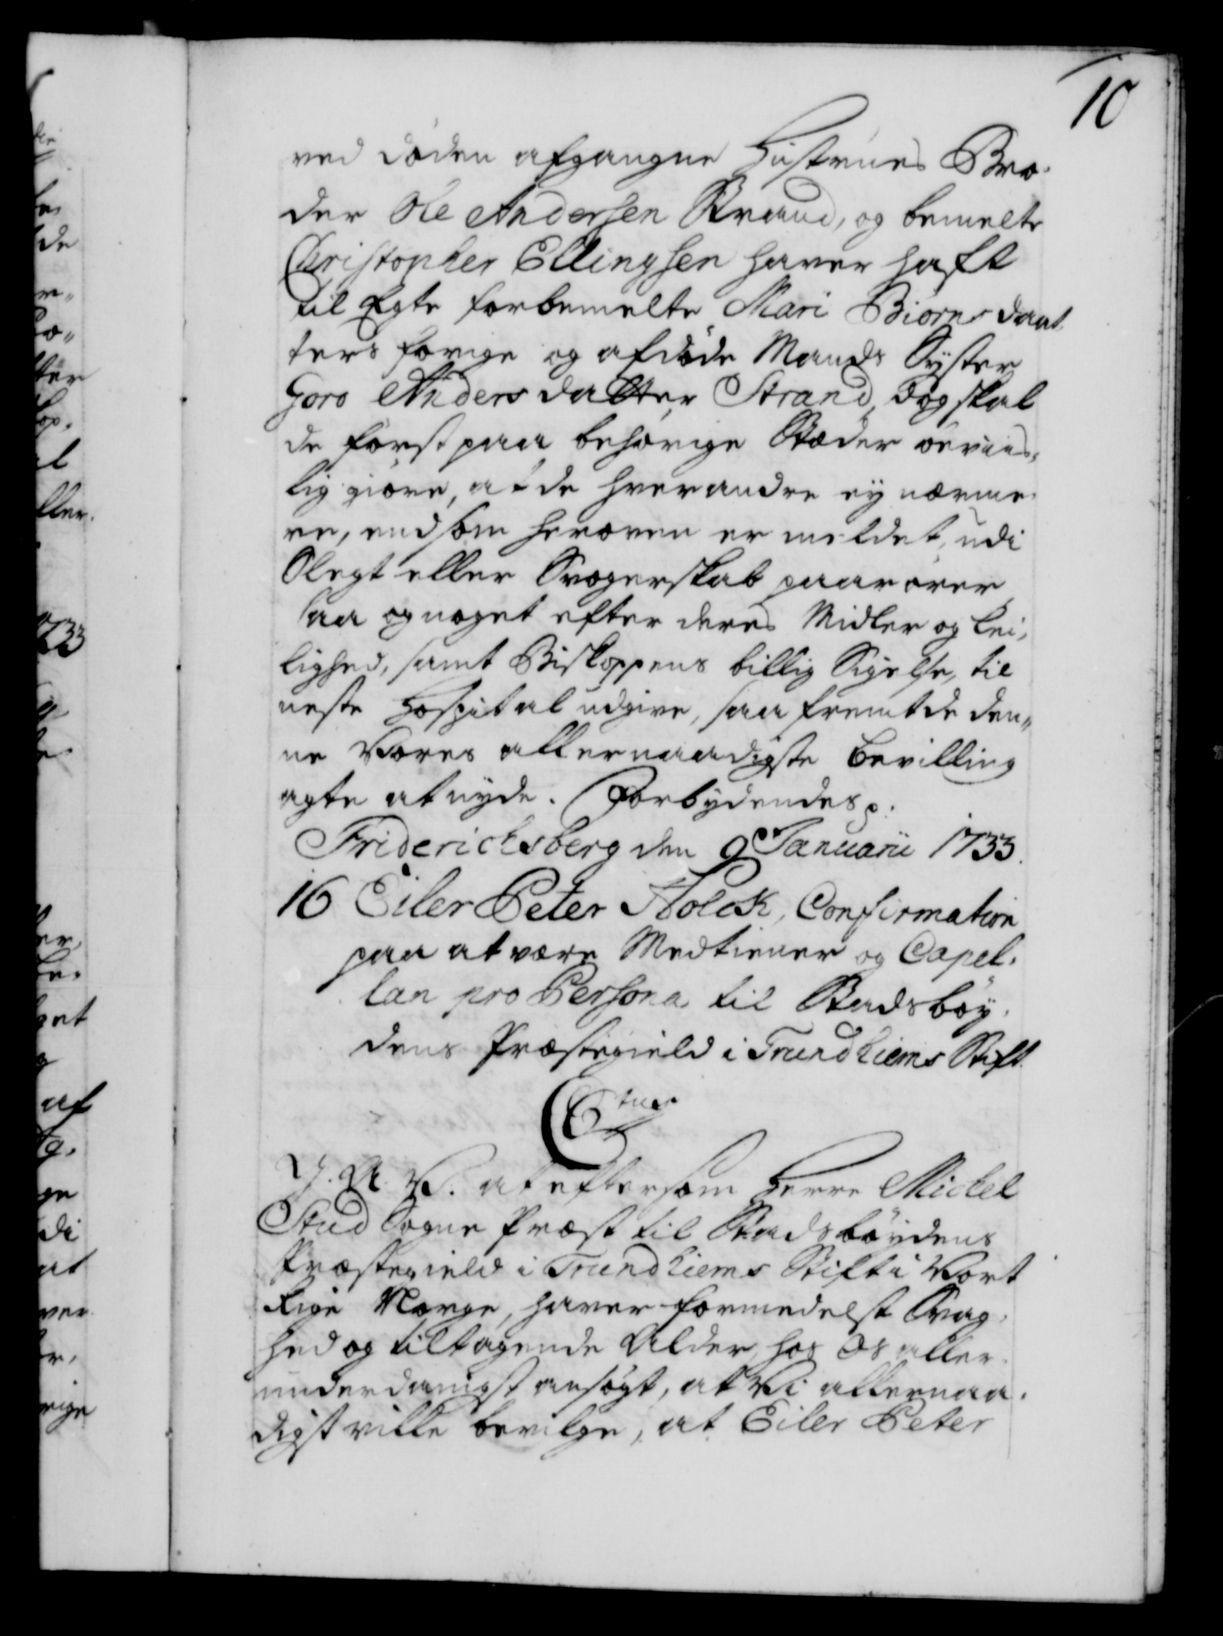 10
ved døden afgangne Hustrues Bro-
der Ole Andersen Strand, og bemelte
Christopher Ellingsen haver haft
til Egte forbemelte Mari Biørns daat-
ters forige og afdøde Mands Syster
Goro Anders datter Strand, Dog skal
de først paa behørige Stæder beviis-
lig giøre, at de hverandre ej nærme-
re, end som herover er meldet, udi
Slegt eller Svogerskab paarører,
saa og noget efter deres Midler og Lei-
lighed, samt Biskoppens billig Sigelse, til
neste Hospital udgive, saa fremt de den-
ne Vores allernaadigste Bevilling
agte at nyde. Forbydendes p.
Friderichsberg den 9 Januarii 1733.
16 Eiler Peter Holck, Confirmation
paa at være Medtiener og Capel-
lan pro Persona til Stadsbøy-
dens Præstegield i Trundhiems Stift.
C 6tus
G. A. V. at eftersom Herr Mickel
Stud Sogne Præst til Stadsbøydens
Præstegield i Trundhiems Stift i Vort
Rige Norge, haver formedelst Svag-
hed og tiltagende Alder hos Os aller-
underdanigst ansøgt, at Vi allernaa-
digst ville bevilge, at Eiler Peter